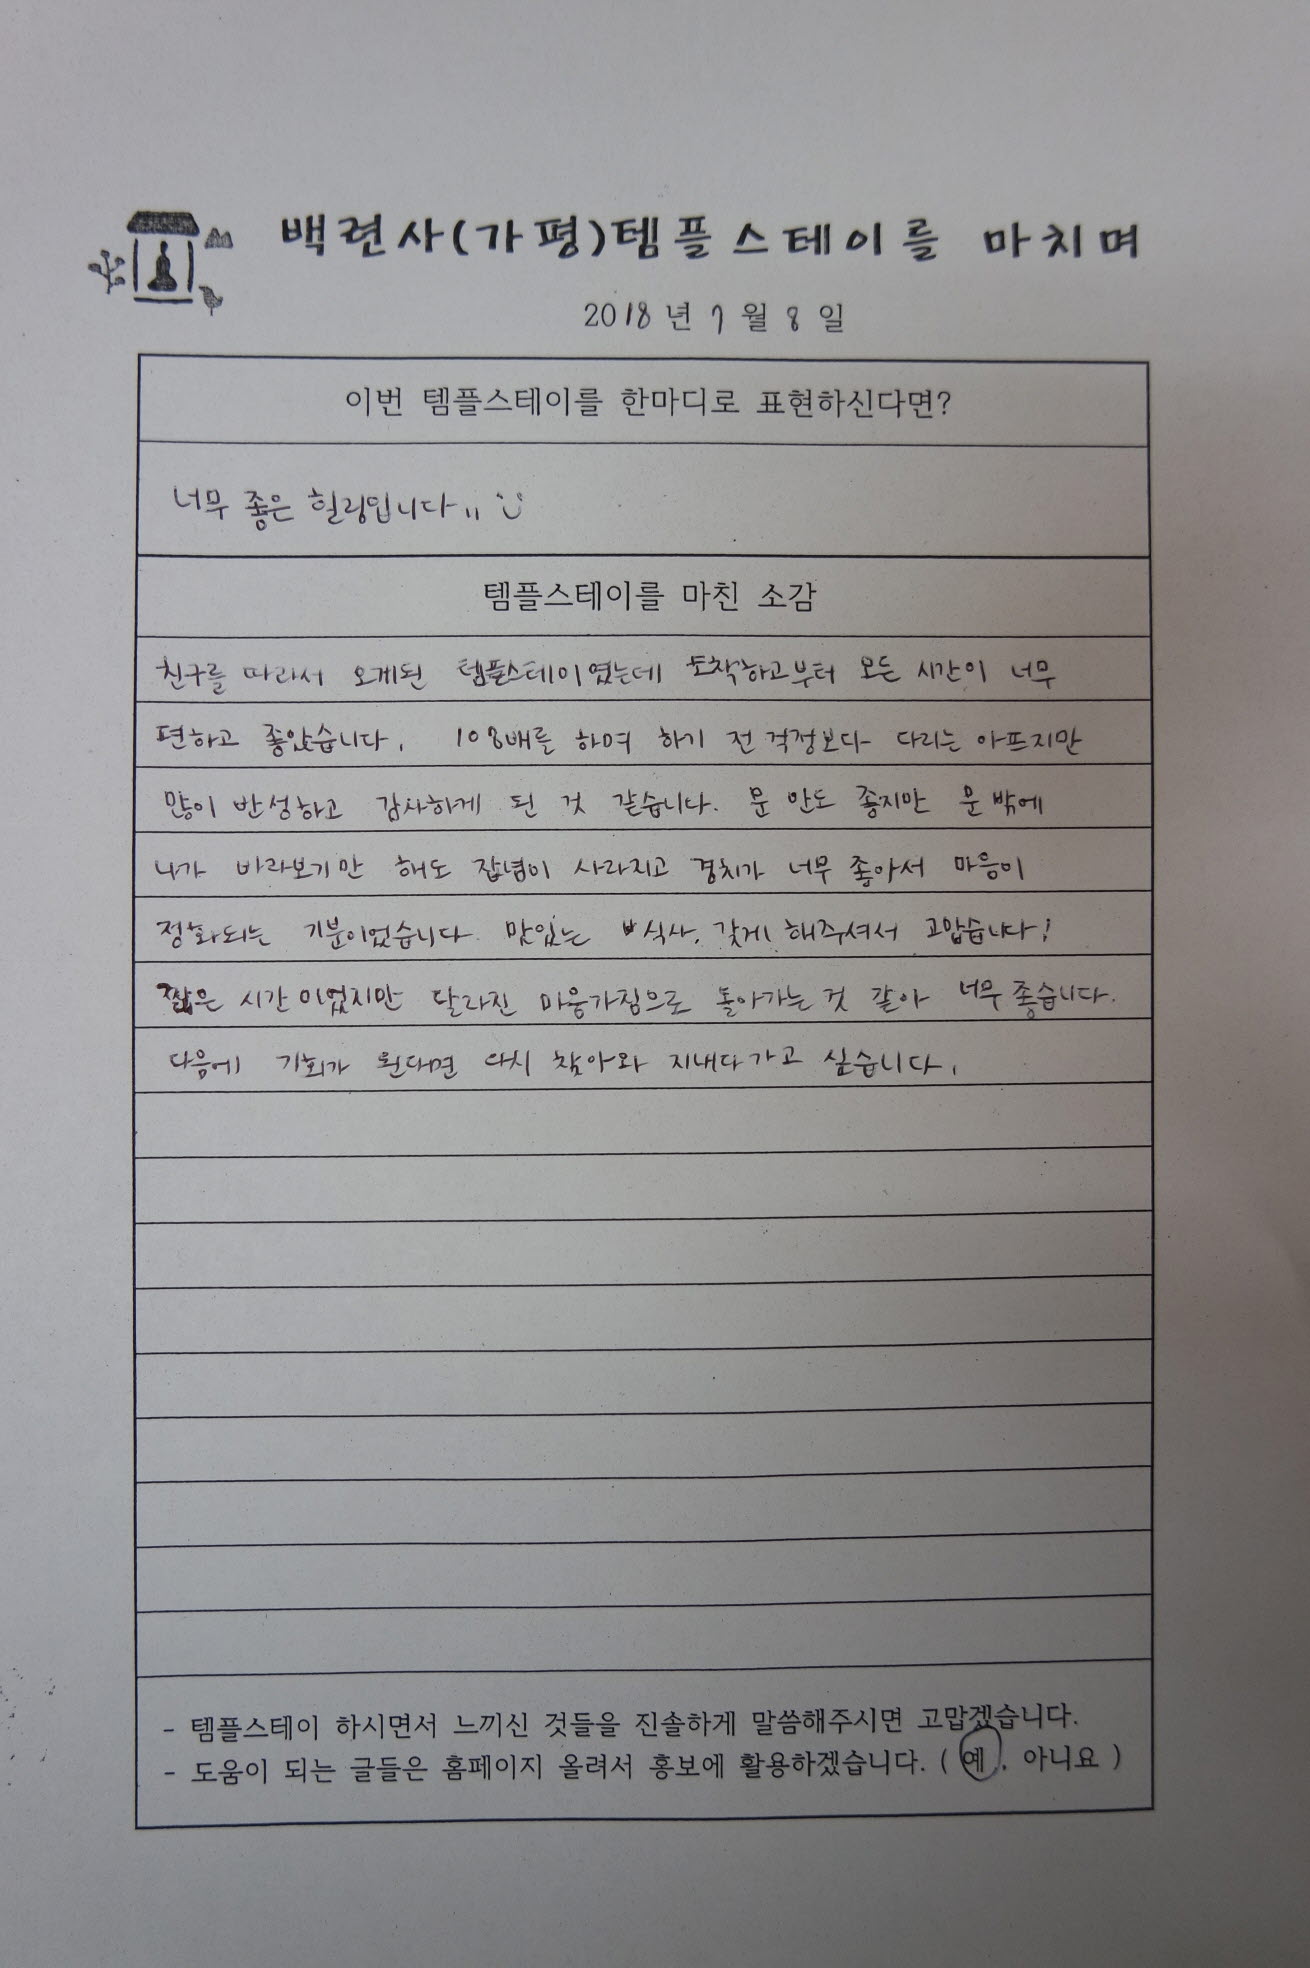 백련사(가평)템플스테이를 마치며
2018년 7월 8일
이번 템플스테이를 한마디로 표현하신다면?
너무 좋은 힐링입니다
템플스테이를 마친 소감
친구를 따라서 오게된 템플스테이였는데 도착하고부터 모든 시간이 너무
편하고 좋았습니다. 108배를 하며 하기 전 걱정보다 다리는 아프지만
많이 반성하고 감사하게 된 것 같습니다. 문 안도 좋지만 문 밖에
나가 바라보기만 해도 잡념이 사라지고 경치가 너무 좋아서 마음이
정화되는 기분이었습니다. 맛있는 식사. 갖게 해주셔서 고맙습니다!
짧은 시간이었지만 달라진 마음가짐으로 돌아가는 것 같아 너무 좋습니다.
다음에 기회가 된다면 다시 찾아와 지내다가고 싶습니다.
- 템플스테이 하시면서 느끼신 것들을 진솔하게 말씀해주시면 고맙겠습니다.
- 도움이 되는 글들은 홈페이지 올려서 홍보에 활용하겠습니다. ( 예, 아니요 )